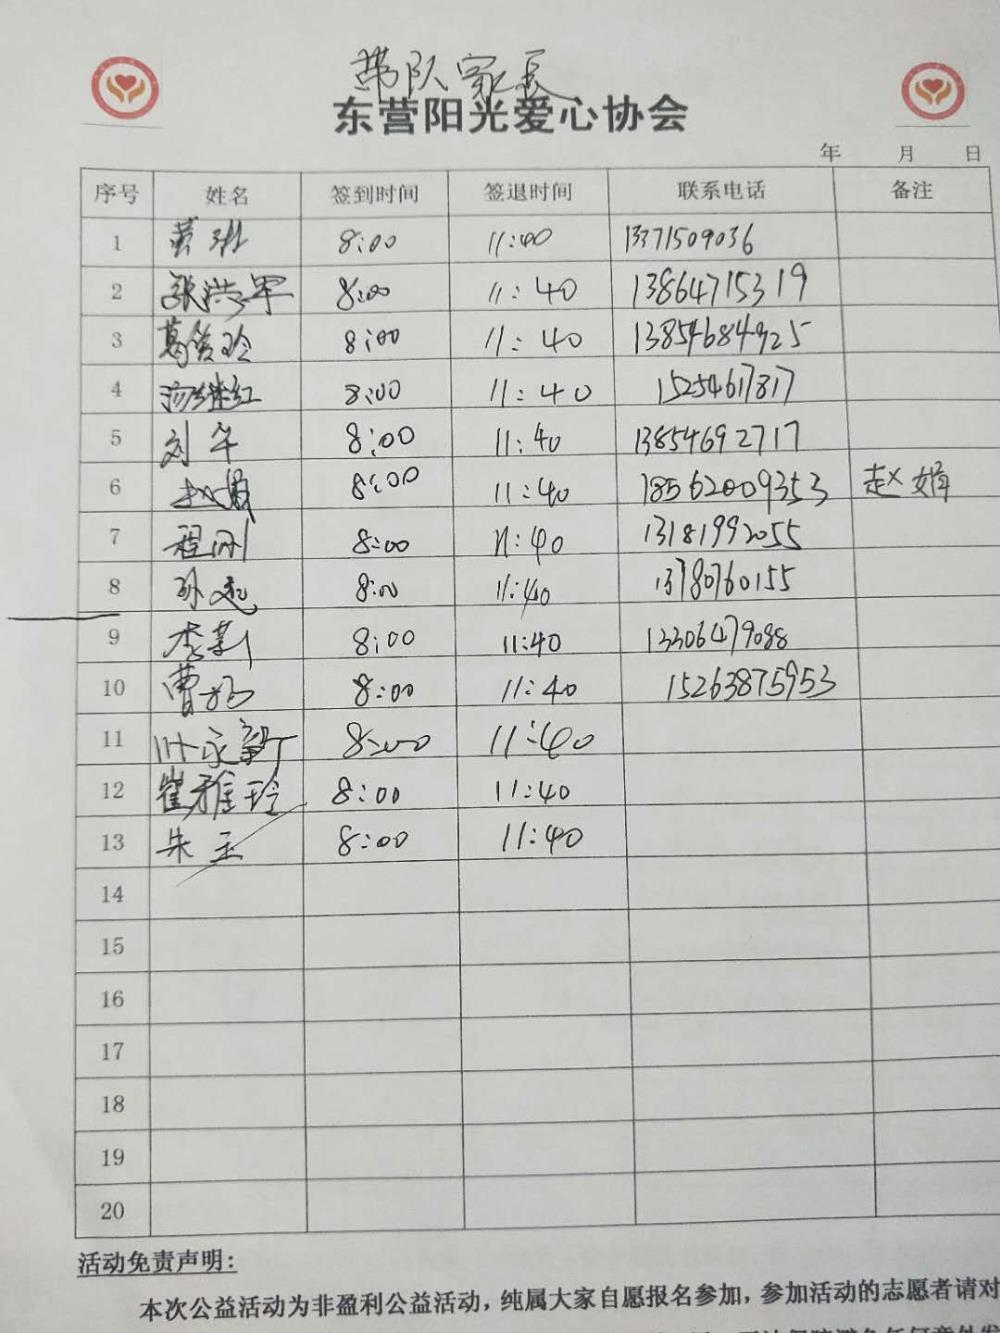 带队家长
东营阳光爱心协会
年 月 日
序号 姓名 签到时间 签退时间 联系电话 备注
1 8:00 11:40 13371509036
2 张洪军 8:00 11:40 13864715319
3 葛俊玲 8:00 11:40 13854684925
4 继红 8:00 11:40 15254617817
5 刘军 8:00 11:40 13854692717
6 赵娟 8:00 11:40 18562009353 赵娟
7 程刚 8:00 11:40 13181992055
8 孙 8:00 11:40 13780760155
9 李莉 8:00 11:40 13306479088
10 曹 8:00 11:40 15263875953
11 叶永新 8:00 11:40
12 崔雅玲 8:00 11:40
13 朱玉 8:00 11:40
14
15
16
17
18
19
20
活动免责声明：
本次公益活动为非盈利公益活动，纯属大家自愿报名参加，参加活动的志愿者请对